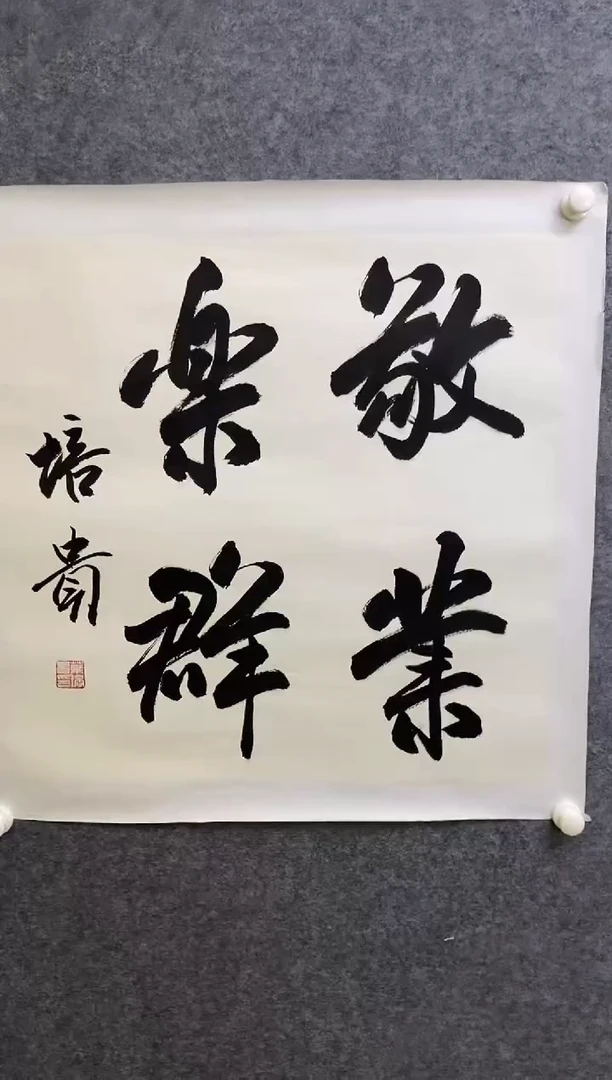 敬業
樂群
培貴